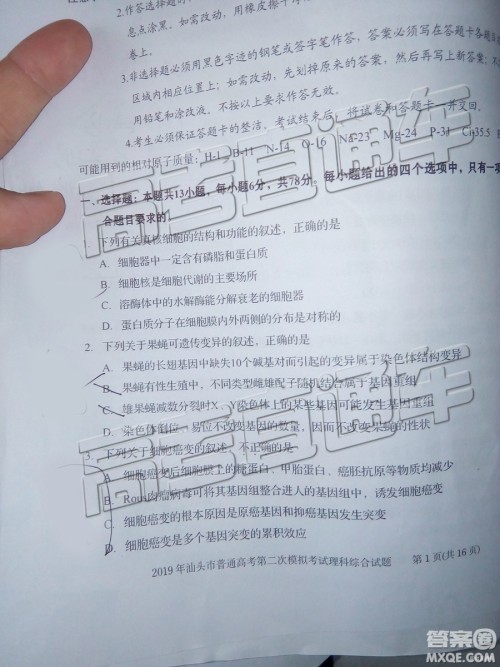 2.作答选择题时
息点涂黑。如需改动，用橡皮擦干
卷上。
3.非选择题必须用黑色字迹的钢笔或签字笔作答，答案必须写在答题卡各题
区域内相应位置上；如需改动，先划掉原来的答案，然后再写上新答案；
用铅笔和涂改液。不按以上要求作答无效。
4.考生必须保证答题卡的整洁。考试结束后，将试卷和答题卡一并交回。
可能用到的相对原子质量：H-1 B-11 N-14 O-16 Na-23 Mg-24 P-31
一、选择题：本题共13小题，每小题6分，共78分。每小题给出的四个选项中，只有一项
合题目要求的
1. 下列有关真核细胞的结构和功能的叙述，正确的是
A. 细胞器中一定含有磷脂和蛋白质
B. 细胞核是细胞代谢的主要场所
C. 溶酶体中的水解酶能分解衰老的细胞器
D. 蛋白质分子在细胞膜内外两侧的分布是对称的
2. 下列关于果蝇可遗传变异的叙述，正确的是
A. 果蝇的长翅基因中缺失10个碱基对而引起的变异属于染色体结构变异
B. 果蝇有性生殖中，不同类型雌雄配子随机结合属于基因重组
C. 雄果蝇减数分裂时X、Y染色体上的某些基因可能发生基因重组
D. 染色体倒位、易位不改变基因的数量，因而不改变果蝇的性状
3. 下列关于细胞癌变的叙述，不正确的是
A. 细胞癌变后细胞膜上的糖蛋白、甲胎蛋白、癌胚抗原等物质均减少
B. Rous肉瘤病毒可将其基因组整合进人的基因组中，诱发细胞癌变
C. 细胞癌变的根本原因是原癌基因和抑癌基因发生突变
D. 细胞癌变是多个基因突变的累积效应
2019 年汕头市普通高考第二次模拟考试理科综合试题 第 1 页(共 16 页)
高考直通车
高考直通车
答案圈
MXQE.COM